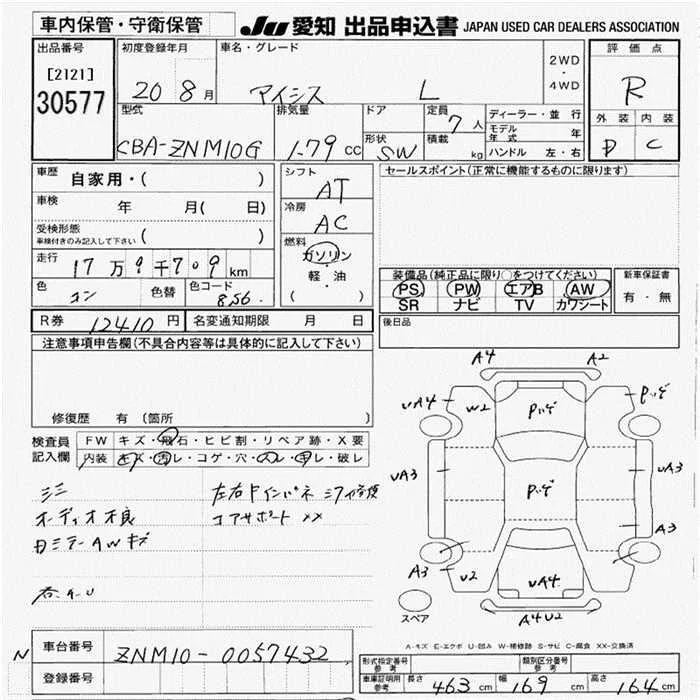 車内保管・守衛保管 JU 愛知 出品申込書 JAPAN USED CAR DEALERS ASSOCIATION
出品番号 初度登録年月 車名・グレード 2WD ・ 4WD 評価点
[2121] 20 8月 アイシス L R
30577 型式 排気量 ドア 定員 7人 ディーラー・並行 外装 内装
CBA-ZNM10G 1.79 CC 形状 SW 積載 kg モデル年式 年 D C
ハンドル 左・右
車歴 自家用・( ) シフト AT セールスポイント(正常に機能するものに限ります)
車検 年 月( 日) 冷房 AC
受検形態 車検付きのみ記入して下さい ( ) 燃料 ガソリン
走行 17万9千709km 軽・油 装備品(純正品に限り○をつけてください) 新車保証書
色 コン 色替 色コード 8S6 ( ) PS PW エアB AW 有・無
SR ナビ TV カワシート
R券 12410円 名変通知期限 月 日 後日品
注意事項申告欄(不具合内容等は具体的に記入して下さい)
A4 A2
UA4 W2 Pッチ Pッチ
修復歴 有(箇所 )
検査員 記入欄 FW キズ・飛石・ヒビ割・リペア跡・X要
内装 キズ・汚レ・コゲ・穴・スレ・キレ・破レ
UA3 Pッチ UA3
オーディオ不良 コアサポート XX
A3
A3 U2 UA4
スペア A4U2
A-キズ E-エクボ U-凹み W-補修跡 S-サビ C-腐食 XX-交換済
N 車台番号 ZNM10-0057432
登録番号
形式指定番号 参考 類別区分番号 参考
車庫証明用 参考 長さ 463cm 幅 169cm 高さ 164cm